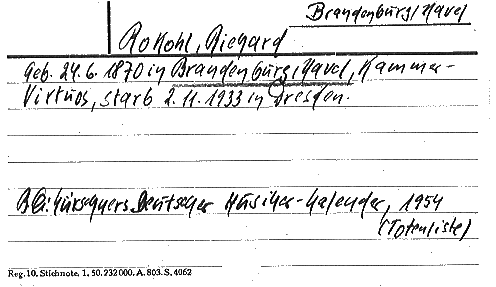 Brandenburg/Havel
Rokohl, Richard
geb. 24.6.1870 in Brandenburg/Havel, Kammer-
Virtuos, starb 2.11.1933 in Dresden.
Bei: Kürschners Deutscher Musiker-Kalender, 1954
(Totenliste)
Reg. 10. Stichnote. 1. 50. 232000. A. 803. S. 4062